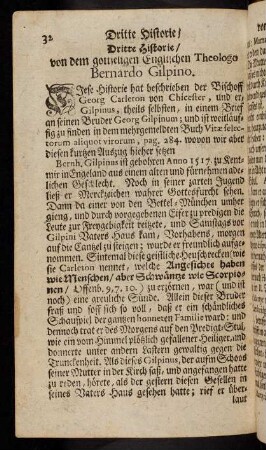 32 Dritte Historie/
Dritte Historie/
von dem gottseligen Englischen Theologo
Bernardo Gilpino.
Diese Historie hat beschrieben der Bischoff
Georg Carleton von Chicester, und er
Gilpinus, theils selbsten, in einem Brief
an seinen Bruder Georg Gilpinum; und ist weitläuf-
fig zu finden in dem mehrgemeldten Buch Vitæ selec-
torum aliquot virorum, pag. 284. wovon wir aber
diesen kurtzen Auszug hieher setzen
Bernh. Gilpinus ist gebohren Anno 1517. zu Kent-
mir in Engeland aus einem alten und fürnehmen ade-
lichen Geschlecht. Noch in seiner zarten Jugend
ließ er Merckzeichen wahrer Gottesfurcht sehen.
Dann da einer von den Bettel-München umher
gieng, und durch vorgegebenen Eifer zu predigen die
Leute zur Freygebigkeit reitzete, und Samstags vor
Gilpini Vaters Haus kam, Vorhabens, morgen
auf die Cantzel zu steigen; wurde er freundlich aufge-
nommen. Sintemal diese geistliche Heuschrecken (wie
sie Carleton nennet, welche Angesichter haben
wie Menschen/ aber Schwäntze wie Scorpio-
nen/ Offenb. 9,7.10.) zu erzörnen, war (und ist
noch) eine greuliche Sünde. Allein dieser Bruder
fraß und soff sich so voll, daß er ein schändliches
Schauspiel der gantzen honneten Familie ward: und
dennoch trat er des Morgens auf den Predigt-Stul,
wie ein vom Himmel plötzlich gefallener Heiliger, und
donnerte unter andern Lastern gewaltig gegen die
Trunckenheit. Als dieses Gilpinus, der auf'm Schoos
seiner Mutter in der Kirch saß, und angefangen hatte
zu reden, hörete, als der gestern diesen Gesellen in
seines Vaters Haus gesehen hatte; rief er über-
laut